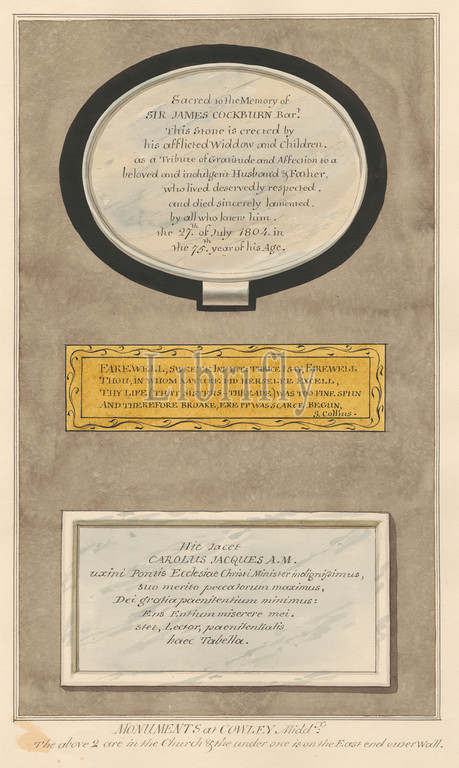 Sacred to the Memory of
SIR JAMES COCKBURN Bart.
This Stone is erected by
his afflicted Widdow and Children.
as a Tribute of Gratitude and Affection to a
beloved and indulgent Husband & Father,
who lived deservedly respected.
and died sincerely lamented.
by all who knew him.
the 27th of July 1804. in
the 75th year of his Age.
FAREWELL, SWEETE INFANT, TWICE I SAY, FAREWELL
THOU, IN WHOM NATURE DID HERSELFE EXCELL,
THY LIFE THAT THREADE, WAS TOO FINE SPUN
AND THEREFORE BROAKE, ERE IT WAS SCARCE BEGUN,
J. Collins.
Librifly
Hic Jacet
CAROLUS JACQUES A.M.
uxini Pontis Ecclesiae Christi Minister indignissimus,
suo merito peccatorum maximus,
Dei gratia paenitentium minimus:
Ens Entium miserere mei.
stet, Lector, paenitentialis
haec Tabella.
MONUMENTS at COWLEY Middx.
The above 2 are in the Church & the under one is on the East end outer Wall.